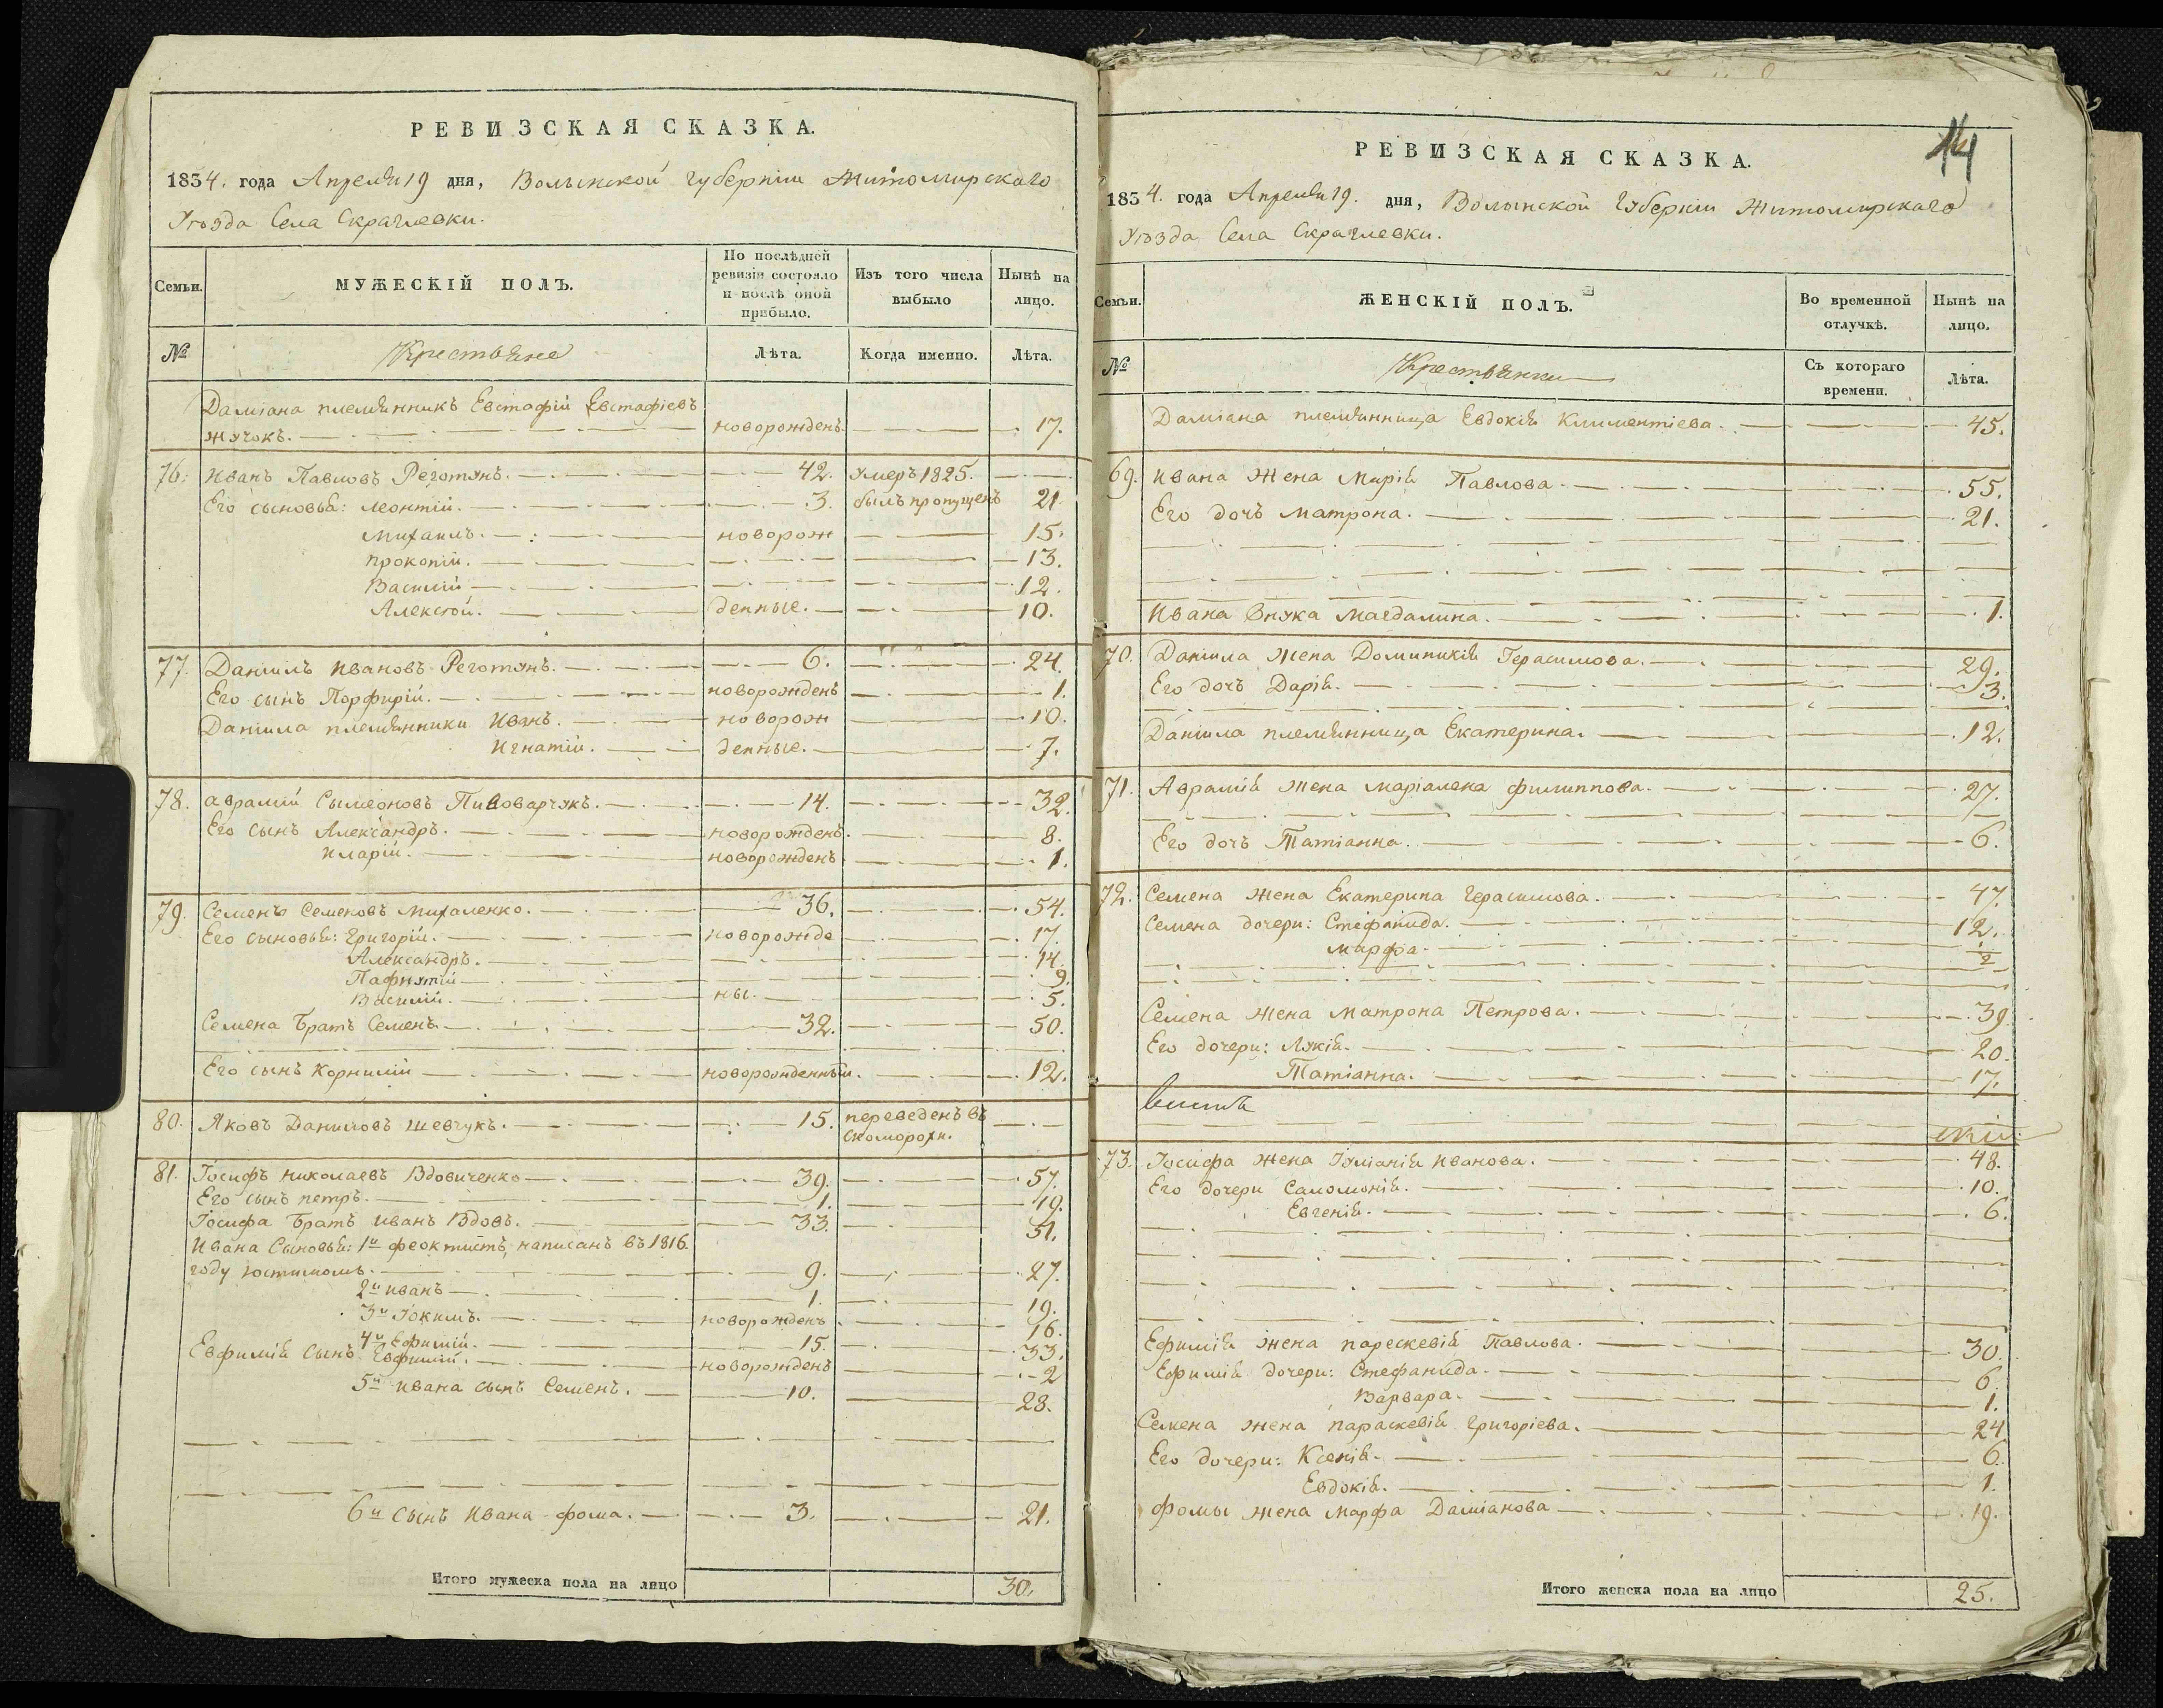 РЕВИЗСКАЯ СКАЗКА.
1834. года Апреля 19 дня, Волынской губернии Житомирскаго
Уѣзда Села Скраглевки.
Семьи. МУЖЕСКІЙ ПОЛЪ. По послѣдней ревизіи состояло и послѣ оной прибыло. Изъ того числа выбыло Нынѣ на лицо.
№ Крестьяне Лѣта. Когда именно. Лѣта.
Даміана племянникъ Евстафій Евстафіевъ
жучокъ. новорожденъ 17.
76. Иванъ Павловъ Реготунъ. 42. умеръ 1825.
Его сыновья: Леонтій. 3. былъ пропущенъ 21
Михаилъ. новорож 15.
Прокопій. 13.
Василій 12.
Алексѣй. денные. 10.
77. Даніилъ Ивановъ Реготунъ. 6. 24.
Его сынъ Порфирій. новорожденъ 1.
Даніила племянники Иванъ. новорож 10.
Игнатій. денные. 7.
78. Аврамій Сымеоновъ Пивоварчукъ. 14. 32.
Его сынъ Александръ. новорожденъ. 8.
Иларій. новорожденъ 1.
79. Семенъ Семеновъ Михаленко. 36. 54.
Его сыновья: Григорій. новорожде 17.
Александръ. 14.
Пафнутій 9.
Василій. ны. 5.
Семена Братъ Семенъ 32. 50.
Его сынъ Корнилій новорожденный. 12.
80. Яковъ Даниловъ шевчукъ. 15. переведенъ въ
скоморохи.
81. Іосифъ Николаевъ Вдовиченко 39. 57.
Его сынъ петръ. 1. 19.
Іосифа Братъ Иванъ Вдовъ. 33. 51.
Ивана Сыновья: 1й феоктистъ, написанъ въ 1816
году 9. 27.
2й иванъ 1. 19.
3й Іокимъ. новорожденъ 16.
4й Ефимій. 15. 33.
Евфимія Сынъ Евфимій. новорожденъ 2
5й Ивана сынъ Семенъ. 10. 28.
6й сынъ Ивана фома. 3. 21.
Итого мужеска пола на лицо 30.
14
РЕВИЗСКАЯ СКАЗКА.
1834. года Апреля 19. дня, Волынской Губерніи Житомирскаго
Уѣзда Села Скраглевки.
Семьи. ЖЕНСКІЙ ПОЛЪ. Во временной отлучкѣ. Нынѣ на лицо.
№ Крестьянки Съ котораго времени. Лѣта.
Даміана племянница Евдокія Климентіева. 45.
69. Ивана Жена Марія Павлова. 55.
Его дочъ Матрона. 21.
Ивана Внука Магдалина. 1.
70. Даніила Жена Доминикія Герасимова. 29.
Его дочъ Дарія. 3.
Даніила племянница Екатерина. 12.
71. Аврамія Жена филиппова. 27.
Его дочъ Татіанна. 6.
72. Семена Жена Екатерина Герасимова. 47.
Семена дочери: Стефанида. 12.
Марфа. 1/2
Семена Жена Матрона Петрова. 39
Его дочери: Лукія. 20.
Татіанна. 17.
73. Іосифа Жена Іуліанія Иванова. 48.
Его дочери Саломонія. 10.
Евгенія. 6.
Ефимія Жена парескевія Павлова. 30.
Ефимія дочери: Стефанида. 6.
Варвара. 1.
Семена Жена параскевія Григоріева. 24
Его дочери: Ксенія. 6.
Евдокія. 1.
Фомы Жена Марфа Даміанова 19.
Итого женска пола на лицо 25.